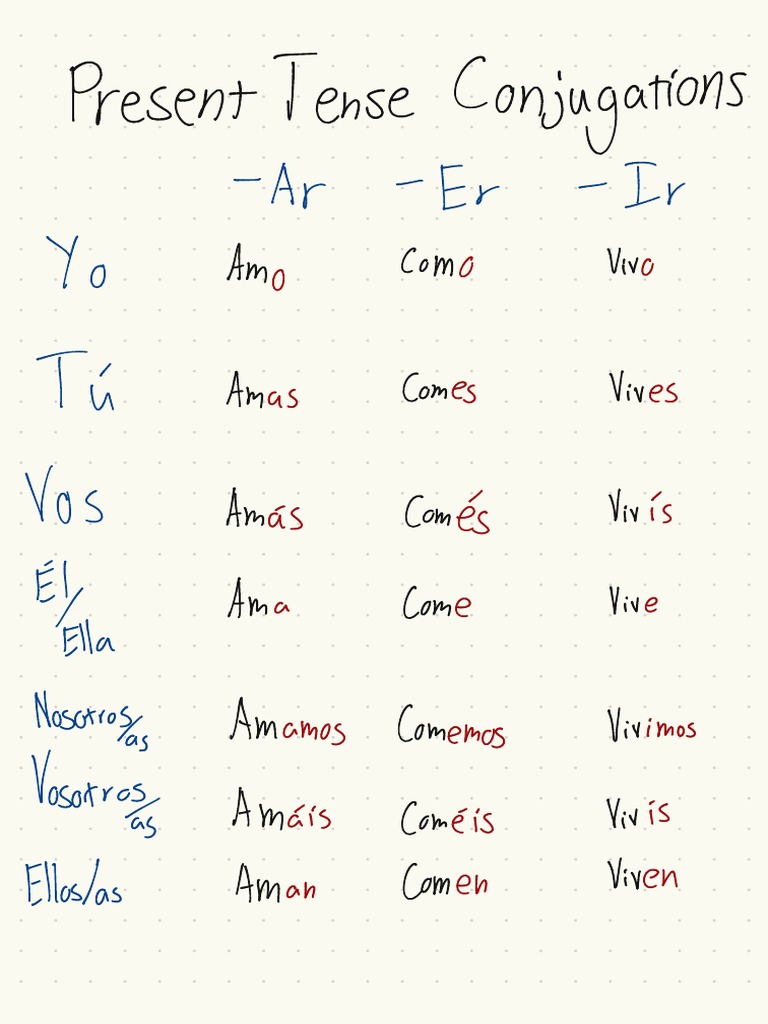 Present Tense Conjugations
-Ar -Er -Ir
Yo Amo Como Vivo
Tú Amas Comes Vives
Vos Amás Comés Vivís
Él/
Ella Ama Come Vive
Nosotros/as Amamos Comemos Vivimos
Vosotros/as Amáis Coméis Vivís
Ellos/as Aman Comen Viven